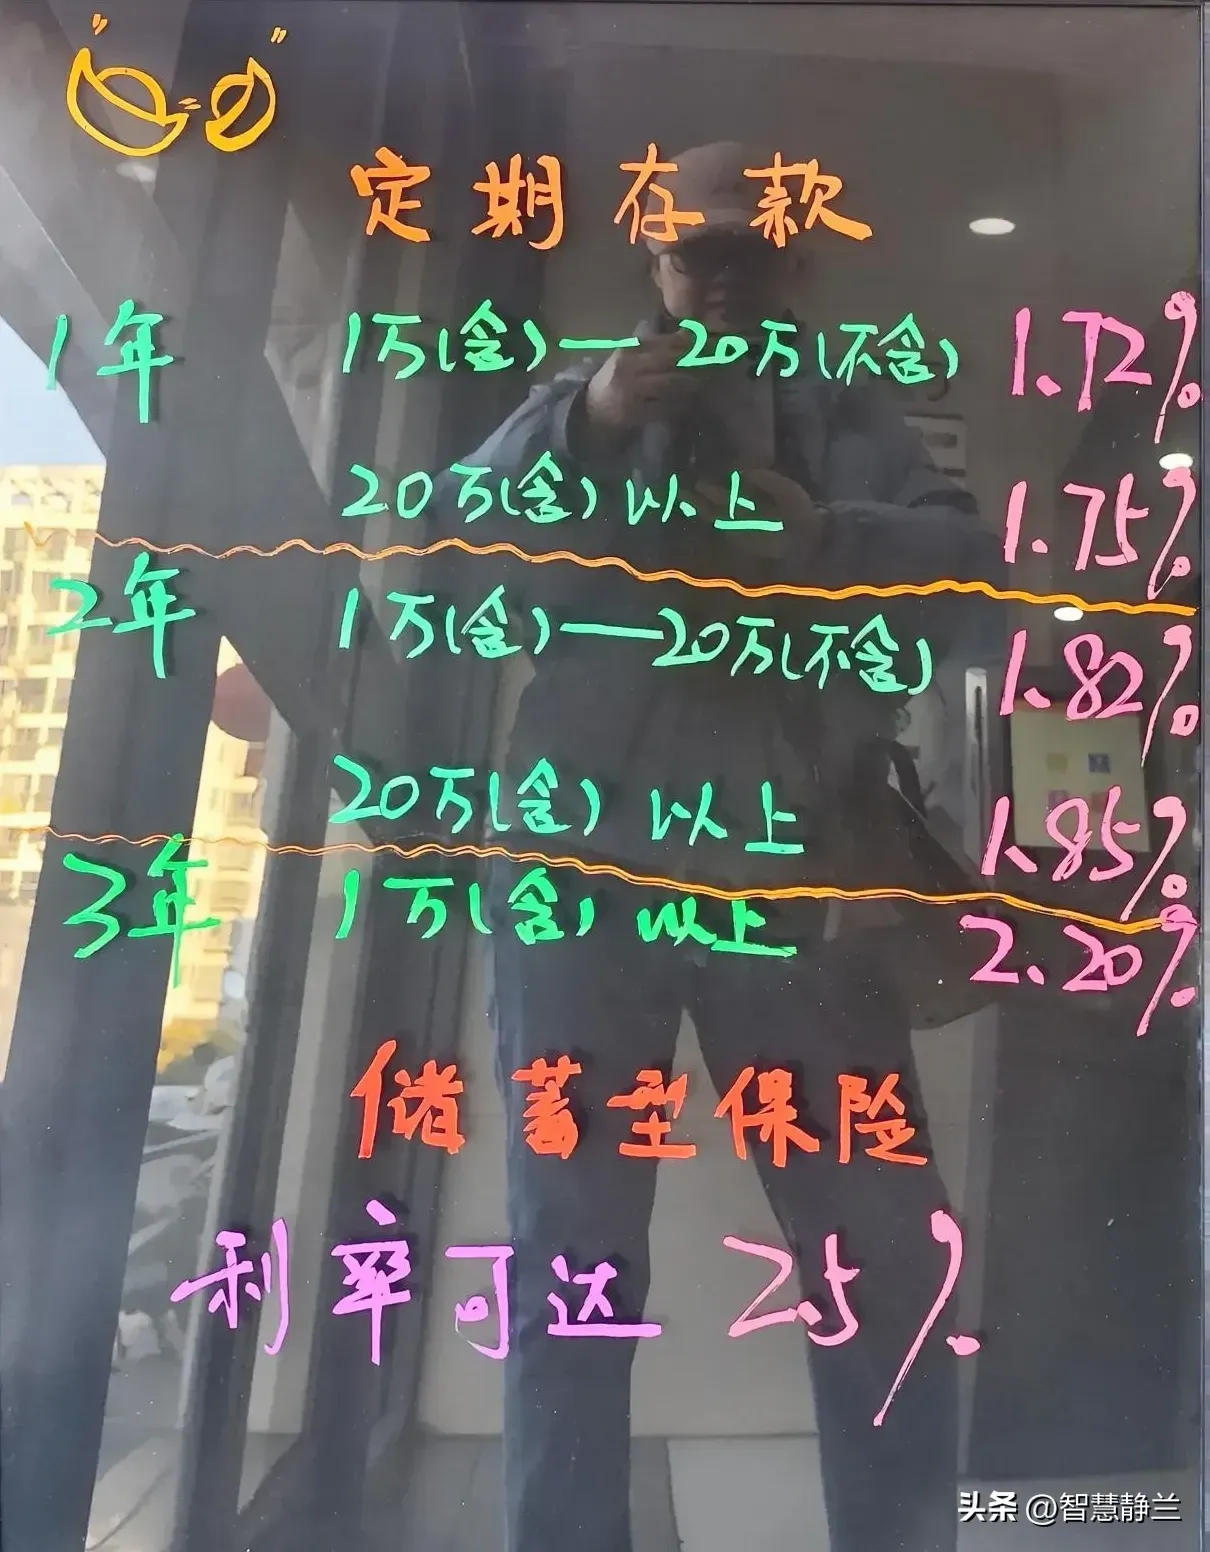 定期存款
1年 1万(含)—20万(不含) 1.72%
20万(含)以上 1.75%
2年 1万(含)—20万(不含) 1.82%
20万(含)以上 1.85%
3年 1万(含)以上 2.20%
储蓄型保险
利率可达 25%
头条 @智慧静兰